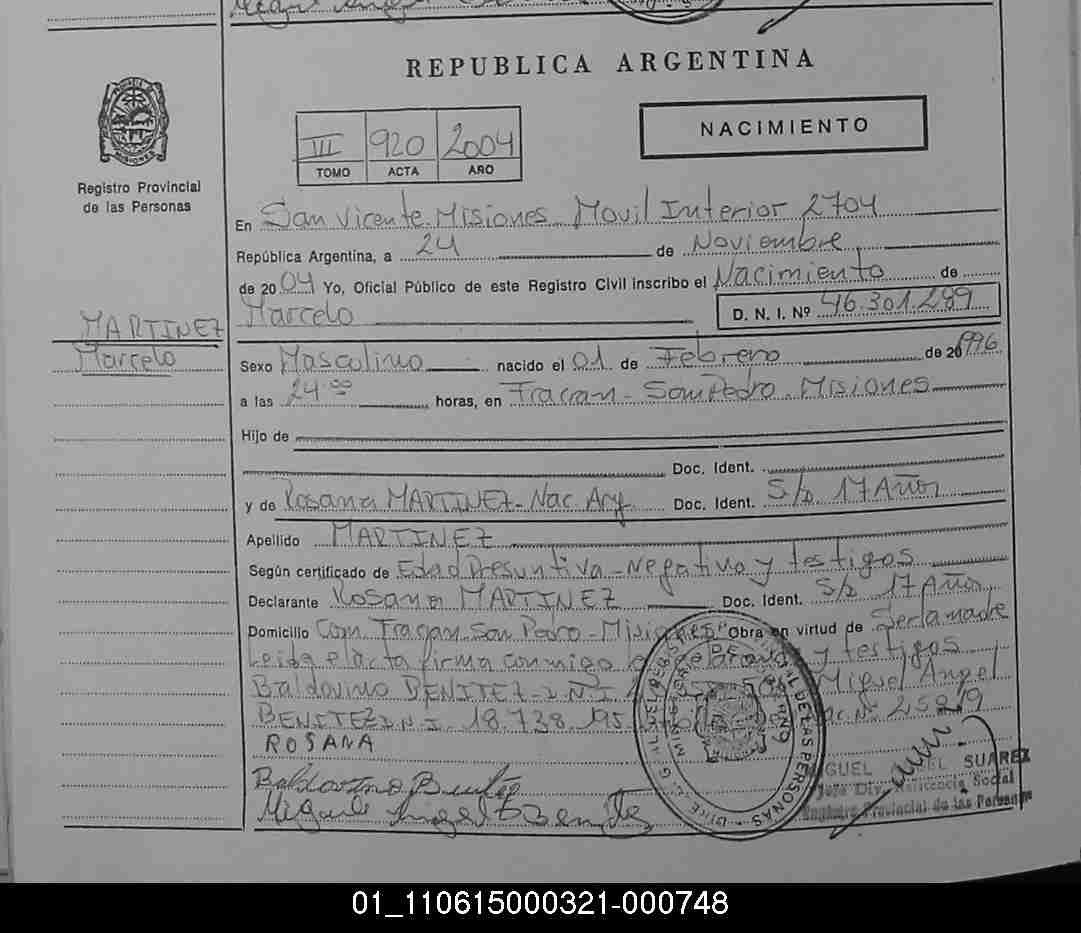 REPUBLICA ARGENTINA
Registro Provincial
de las Personas
III 920 2004
TOMO ACTA AÑO
NACIMIENTO
En San Vicente Misiones Movil Interior 2704
República Argentina, a 24 de Noviembre
de 2004 Yo, Oficial Público de este Registro Civil inscribo el Nacimiento de
Marcelo D. N. I. Nº 46.301.289
MARTINEZ
Marcelo
Sexo Masculino nacido el 01 de Febrero de 20 1996
a las 24 00 horas, en Fracran - San Pedro. Misiones
Hijo de
Doc. Ident.
y de Rosana MARTINEZ - Nac Arg. Doc. Ident. S/D 17 Años
Apellido MARTINEZ
Según certificado de Edad Presuntiva - Negativo y testigos
Declarante Rosana MARTINEZ Doc. Ident. S/D 17 Años
Domicilio Com. Fracan San Pedro - Misiones" Obra en virtud de Ser la madre
Leida el acta firma conmigo y testigos
Baldovino BENITEZ - D.N.I Miguel Angel
BENITEZ D.N.I. 18.738.195 25819
ROSANA
Baldovino Benitez
Miguel Angel Benitez
SUAREZ
Jefe Div. Asistencia Social
Registro Provincial de las Personas
01_110615000321-000748